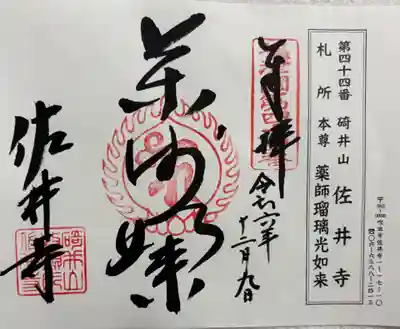 第四十四番 碕井山 佐井寺
札所 本尊 薬師瑠璃光如来
吹田市佐井寺一ー一七ー一〇
奉拝
令和六年
十二月九日
薬師如来
佐井寺